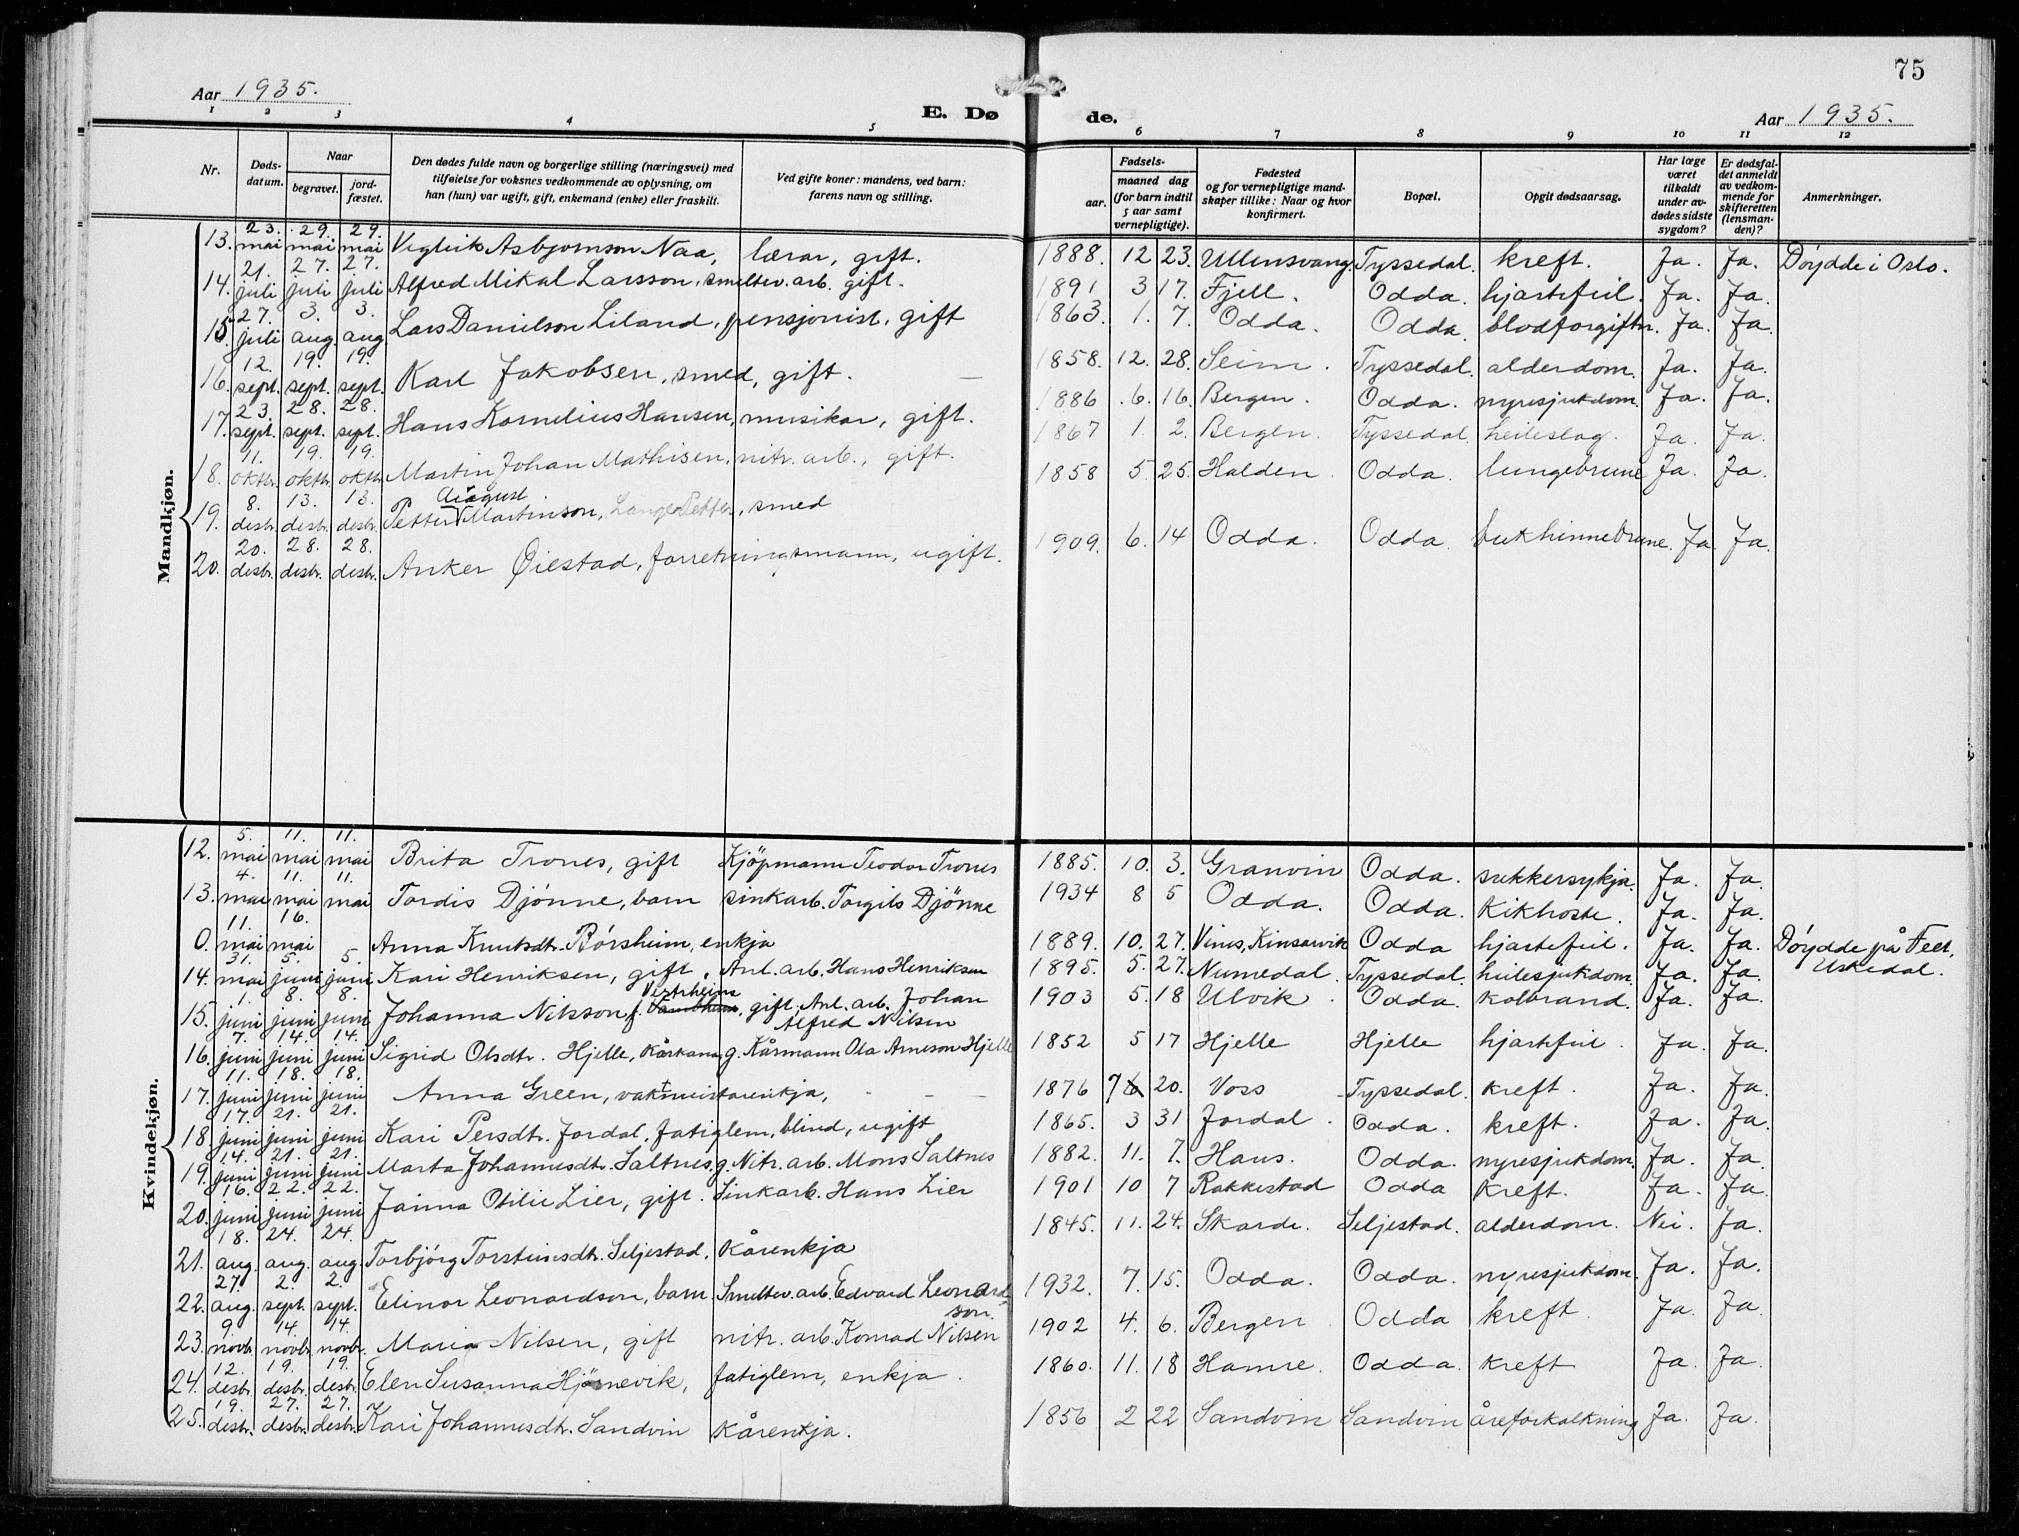 75
Aar 1935.
E. Døde.
Aar 1935.
1 2 3 4 5 6 7 8 9 10 11 12
Nr.
Døds-
datum.
Naar
begravet.
jord-
fæstet.
Den dødes fulde navn og borgerlige stilling (næringsvei) med
tilføielse for voksnes vedkommende av oplysning, om
han (hun) var ugift, gift, enkemand (enke) eller fraskilt.
Ved gifte koner: mandens, ved barn:
farens navn og stilling.
Fødsels-
aar.
maaned dag
(for barn indtil
5 aar samt
vernepligtige).
Fødested
og for vernepligtige mand-
skaper tillike: Naar og hvor
konfirmert.
Bopæl.
Opgit dødsaarsag.
Har læge
været
tilkaldt
under av-
dødes sidste
sygdom?
Er dødsfal-
det anmeldt
av vedkom-
mende for
skifteretten
(lensman-
den)?
Anmerkninger.
Mandkjøn.
13. 23. mai 29. mai 29. mai Viglik Asbjørnson Naa, lærar, gift. 1888. 12 23. Ullensvang Tyssedal. kreft. Ja. Ja. Døydde i Oslo.
14. 21. juli 27. juli 27. juli Alfred Mikal Larsson, smeltev. arb. gift. 1891 3 17. Fjell. Odda. hjartefeil. Ja. Ja.
15. 27. juli 3. aug. 3. aug. Lars Danielson Liland, pensjonist, gift 1863. 1. 7. Odda. Odda. blodforgiftn. Ja. Ja.
16. 12. sept. 19. sept. 19. sept. Karl Jakobsen, smed, gift. — 1858. 12. 28. Seim. Tyssedal. alderdom. Ja. Ja.
17. 23. sept. 28. sept. 28. sept. Hans Kornelius Hansen, musikar, gift. 1886 6. 16. Bergen. Odda. nyresjukdom. Ja. Ja.
18. 11. oktbr. 19. oktbr. 19. oktbr. Martin Johan Mathisen, nitr. arb., gift. 1867 1. 2. Bergen. Tyssedal heileslag. Ja. Ja.
19. 8. desbr. 13. desbr. 13. desbr. Petter August Martinson, Lange-Petter, smed 1858 5. 25. Halden. Odda. lungebrune Ja. Ja.
20. 20. desbr. 28. desbr. 28. desbr. Anker Øiestad, forretningsmann, ugift. 1909. 6. 14 Odda. Odda. bukhinnebrune. Ja. Ja.
Kvindekjøn.
12. 5. mai 11. mai 11. mai Brita Trones, gift Kjøpmann Teodor Trones 1885. 10. 3. Granvin Odda. sukkersykja. Ja. Ja.
13. 4. mai 11. mai 11. mai Tordis Djønne, barn sinkarb. Torgils Djønne 1934 8 5 Odda. Odda. Kikhoste. Ja. Ja.
0. 11. mai 16. mai Anna Knutsdtr. Børsheim, enkja 1889. 10. 27. Vines, Kinsarvik Odda hjartefeil. Ja. Ja. Døydde på Feet,
Uskedal.
14. 31. mai 5. juni 5. juni Kari Henriksen, gift. Anl. arb. Hans Henriksen 1895. 5. 27. Numedal. Tyssedal. heilesjukdom. Ja. Ja.
15. 1. juni 8. juni 8. juni Johanna Nilsson, f. Vestrheim, gift. Anl. arb. Johan
Alfred Nilsen 1903 5. 18 Ulvik. Odda. Kolbrand. Ja. Ja.
16. 7. juni 14. juni 14. juni Sigrid Olsdtr. Hjelle, kårkana, g. Kårmann Ola Arneson Hjelle 1852 5 17 Hjelle Hjelle hjartefeil. Ja. Ja.
17. 11. juni 18. juni 18. juni Anna Green, vaktmeistarenkja, — — 1876 7 20. Voss Tyssedal. kreft. Ja. Ja.
18. 17. juni 21. juni 21. juni Kari Persdtr. Jordal, fatiglem, blind, ugift 1865. 3 31 Jordal. Odda. kreft. Ja. Ja.
19. 14. juni 21. juni 21. juni Marta Johannesdtr. Saltnes, g. Nitr. arb. Mons Saltnes 1882. 11. 7. Haus. Odda. nyresjukdom. Ja. Ja.
20. 16. juni 22. juni 22. juni Jaina Otilie Lier, gift. Sinkarb. Hans Lier 1901 10 7 Rakkestad Odda kreft. Ja. Ja.
21. 18. aug. 24. aug. 24. aug. Torbjørg Torsteinsdtr. Seljestad, Kårenkja 1845. 11. 24. Skarde. Seljestad. alderdom. Nei. Ja.
22. 27. aug. 2. sept. 2. sept. Elinor Leonardson, barn. Smeltev. arb. Edvard Leonard-
son. 1932. 7. 15. Odda. Odda. nyresjukdom. Ja. Ja.
23. 9. novbr. 14. novbr. 14. novbr. Maria Nilsen, gift nitr. arb. Konrad Nilsen 1902 4. 6. Bergen Odda kreft Ja. Ja.
24. 12. desbr. 19. desbr. 19. desbr. Elen Susanna Hjørnevik, fatiglem, enkja. 1860. 11. 18 Hamre. Odda. kreft Ja. Ja.
25. 19. desbr. 27. desbr. 27. desbr. Kari Johannesdtr. Sandvin Kårenkja. 1856 2 22 Sandvin Sandvin åreforkalkning Ja. Ja.